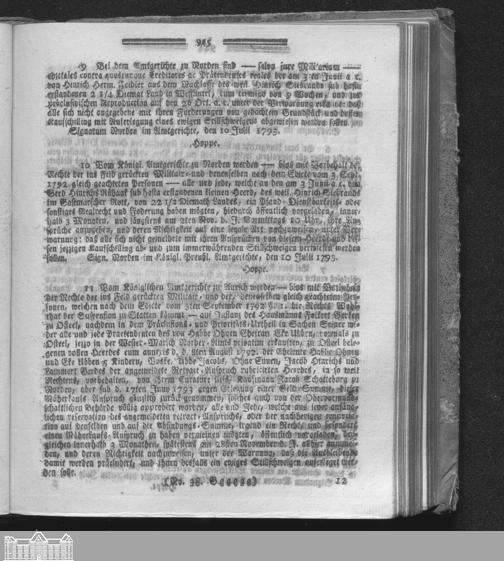 945
9 Bei dem Amtgerichte zu Norden sind — salvo jure Militarium —
Edictales contra quoscunque Creditores ac Prätendentes reales der am 3ten Junii a. c.
von Hinrich Herm. Neddier aus dem Nachlasse des weil. Hinrich Siebrands sub hasta
erstandenen 2 1/4 Diemat Land in Westlintel, cum termino von 9 Wochen, und zur
präclusivischen Reproduction auf den 26 Oct. a. c. unter der Verwarnung erkannt: daß
alle sich nicht angegebene mit ihren Forderungen von gedachtem Grundstück und dessen
Kaufschilling mit Auferlegung eines ewigen Stillschweigens abgewiesen werden sollen.
Signatum Norden im Amtgerichte, den 10 Julii 1793.
Hoppe.
10 Vom Königl. Amtgerichte zu Norden werden — bios mit Vorbehalt der
Rechte der ins Feld gerückten Militair- und denenselben nach dem Edicte vom 3 Sept.
1792 gleich geachteten Personen — alle und jede, welche an den am 3 Junii a. c. von
Gerd Hinrichs sub hasta erstandenen kleinen Heerd, des weil. Hinrich Siebrands
im Rott, von 22 1/2 Diemath Landes, ein Pfand- Dienstbarkeits- oder
sonstiges Realrecht und Foderung haben mögten, hiedurch öffentlich vorgeladen, inner-
halb 3 Monaten, und längstens am 2ten Nov. d. J. Vormittags 10 Uhr, ihre An-
sprüche anzugeben, und deren Richtigkeit auf eine legale Art nachzuweisen, unter Ver-
warnung: daß alle sich nicht gemeldete mit ihren Ansprüchen von diesem Heerde und des-
sen jezzigen Kaufschilling ab- und zum immerwährenden Stillschweigen verwiesen werden
sollen. Sign. Norden im Königl. Preußl. Amtgerichte, den 10 Julii 1793.
Hoppe.
11 Vom Königlichen Amtgerichte zu Aurich werden — bios mit Vorbehalt
der Rechte der ins Feld gerückten Militair, und der, denenselben gleich geachteten Per-
sonen, welchen nach dem Edicte vom 3ten September 1792 die Rechts Wohl-
that der Suspension zu Statten kömmt — auf Instanz des Hausmanns Folkert Gerdes
zu Osteel, nachdem in dem Präclusions- und Prioritäts-Urtheil in Sachen Seiner wi-
der alle und jede Praetendenten des von Habbe Ohnen Ehefrau Eke Ubben, vormals zu
Osteel, jezo in der Wester-Marsch Norder-Amts privatim erkauften, zu Osteel bele-
genen vollen Heerdes cum annexis d. d. 8ten August 1792. der Eheleute Habbe Ohnen
und Eke Ubben 5 Kindern, Voske, Ubbe Jacobs, Ohne Emen, Jacob Hinrichs und
Lammert Gerdes der angemeldete Retract-Anspruch rubricirten Heerdes, in so weit
Rechtens, vorbehalten, von ihrem Curatore Kaufmann Jacob Schatteborg zu
Norden, aber sub d. 17ten Juny 1793 gegen Erlegung einer Geld-Summe, dieser
Näherkaufs Anspruch gänzlich zurück genommen, solches auch von der Obervormund-
schaftlichen Behörde völlig approbirt worden, alle und Jede, welche aus jener anfäng-
lichen reservation des angemeldeten retract-Anspruchs, oder der nachherigen renuncia-
tion auf denselben und auf die Abfindungs-Summe, irgend ein Recht, und besonders
einen Näherkaufs-Anspruch zu haben vermeinen mögten, öffentlich vorgeladen, der-
gleichen innerhalb 3 Monathen, spätestens am 28sten November d. J. alhier anzumel-
den, und deren Richtigkeit nachzuweisen, unter der Warnung, daß die Ausbleibende
damit werden präcludirt, und ihnen deshalb ein ewiges Stillschweigen auferleget wer-
den solle.
(No. 38. Gggggg) 12